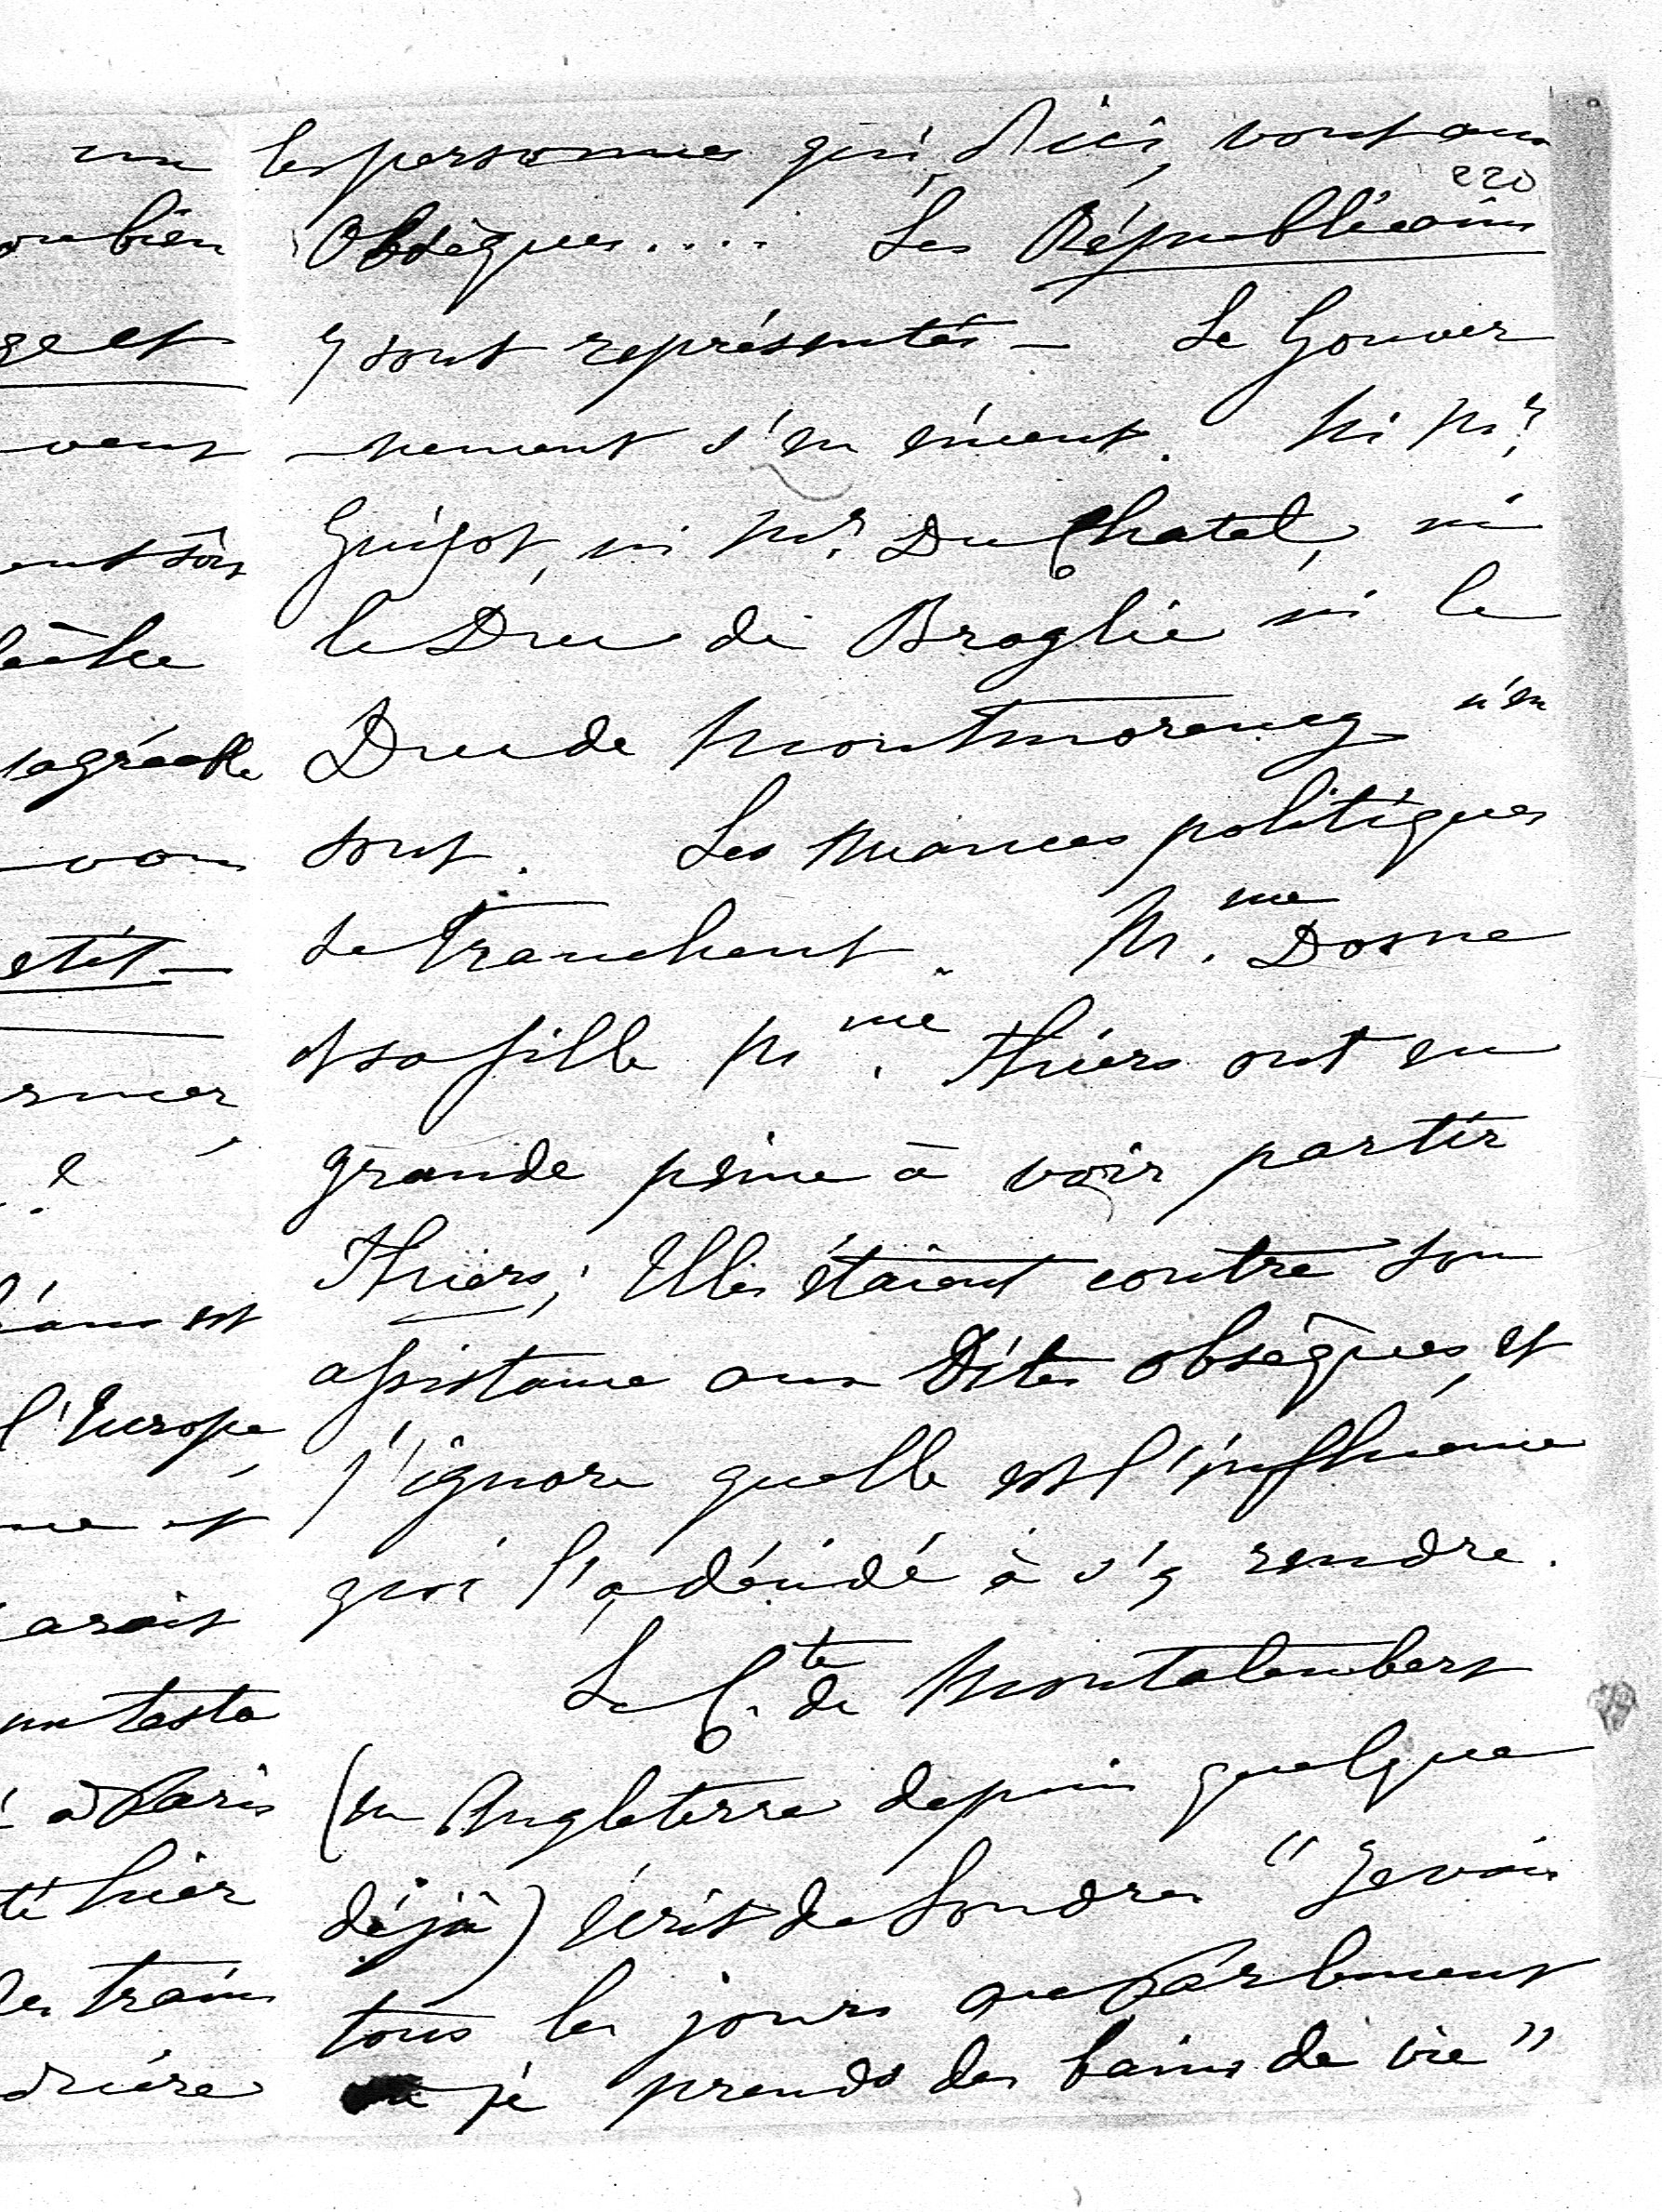 les personnes qui, d'ici, vont aux
220
Obsèques.... Les Républicains
y sont représentés — Le Gouver
nement s'en émeut. Ni Mr
Guizot, ni Mr DuChatel, ni
le Duc de Broglie ni le
Duc de Montmorency n'en
sont. Les nuances politiques
se tranchent. Mme Dosne
et sa fille Mme Thiers ont eu
grande peine à voir partir
Thiers; Elles étaient contre son
assistance aux Dites obsèques, et
j'ignore quelle est l'influence
qui l'a décidé à s'y rendre.
Le Cte de Montalembert
(en Angleterre depuis quelque
déjà) écrit de Londres "Je vais
tous les jours au Parlement
je prends des bains de vie"
un
ou bien
veut
sagréable
vous
l'Europe
à Paris
hier
les trains